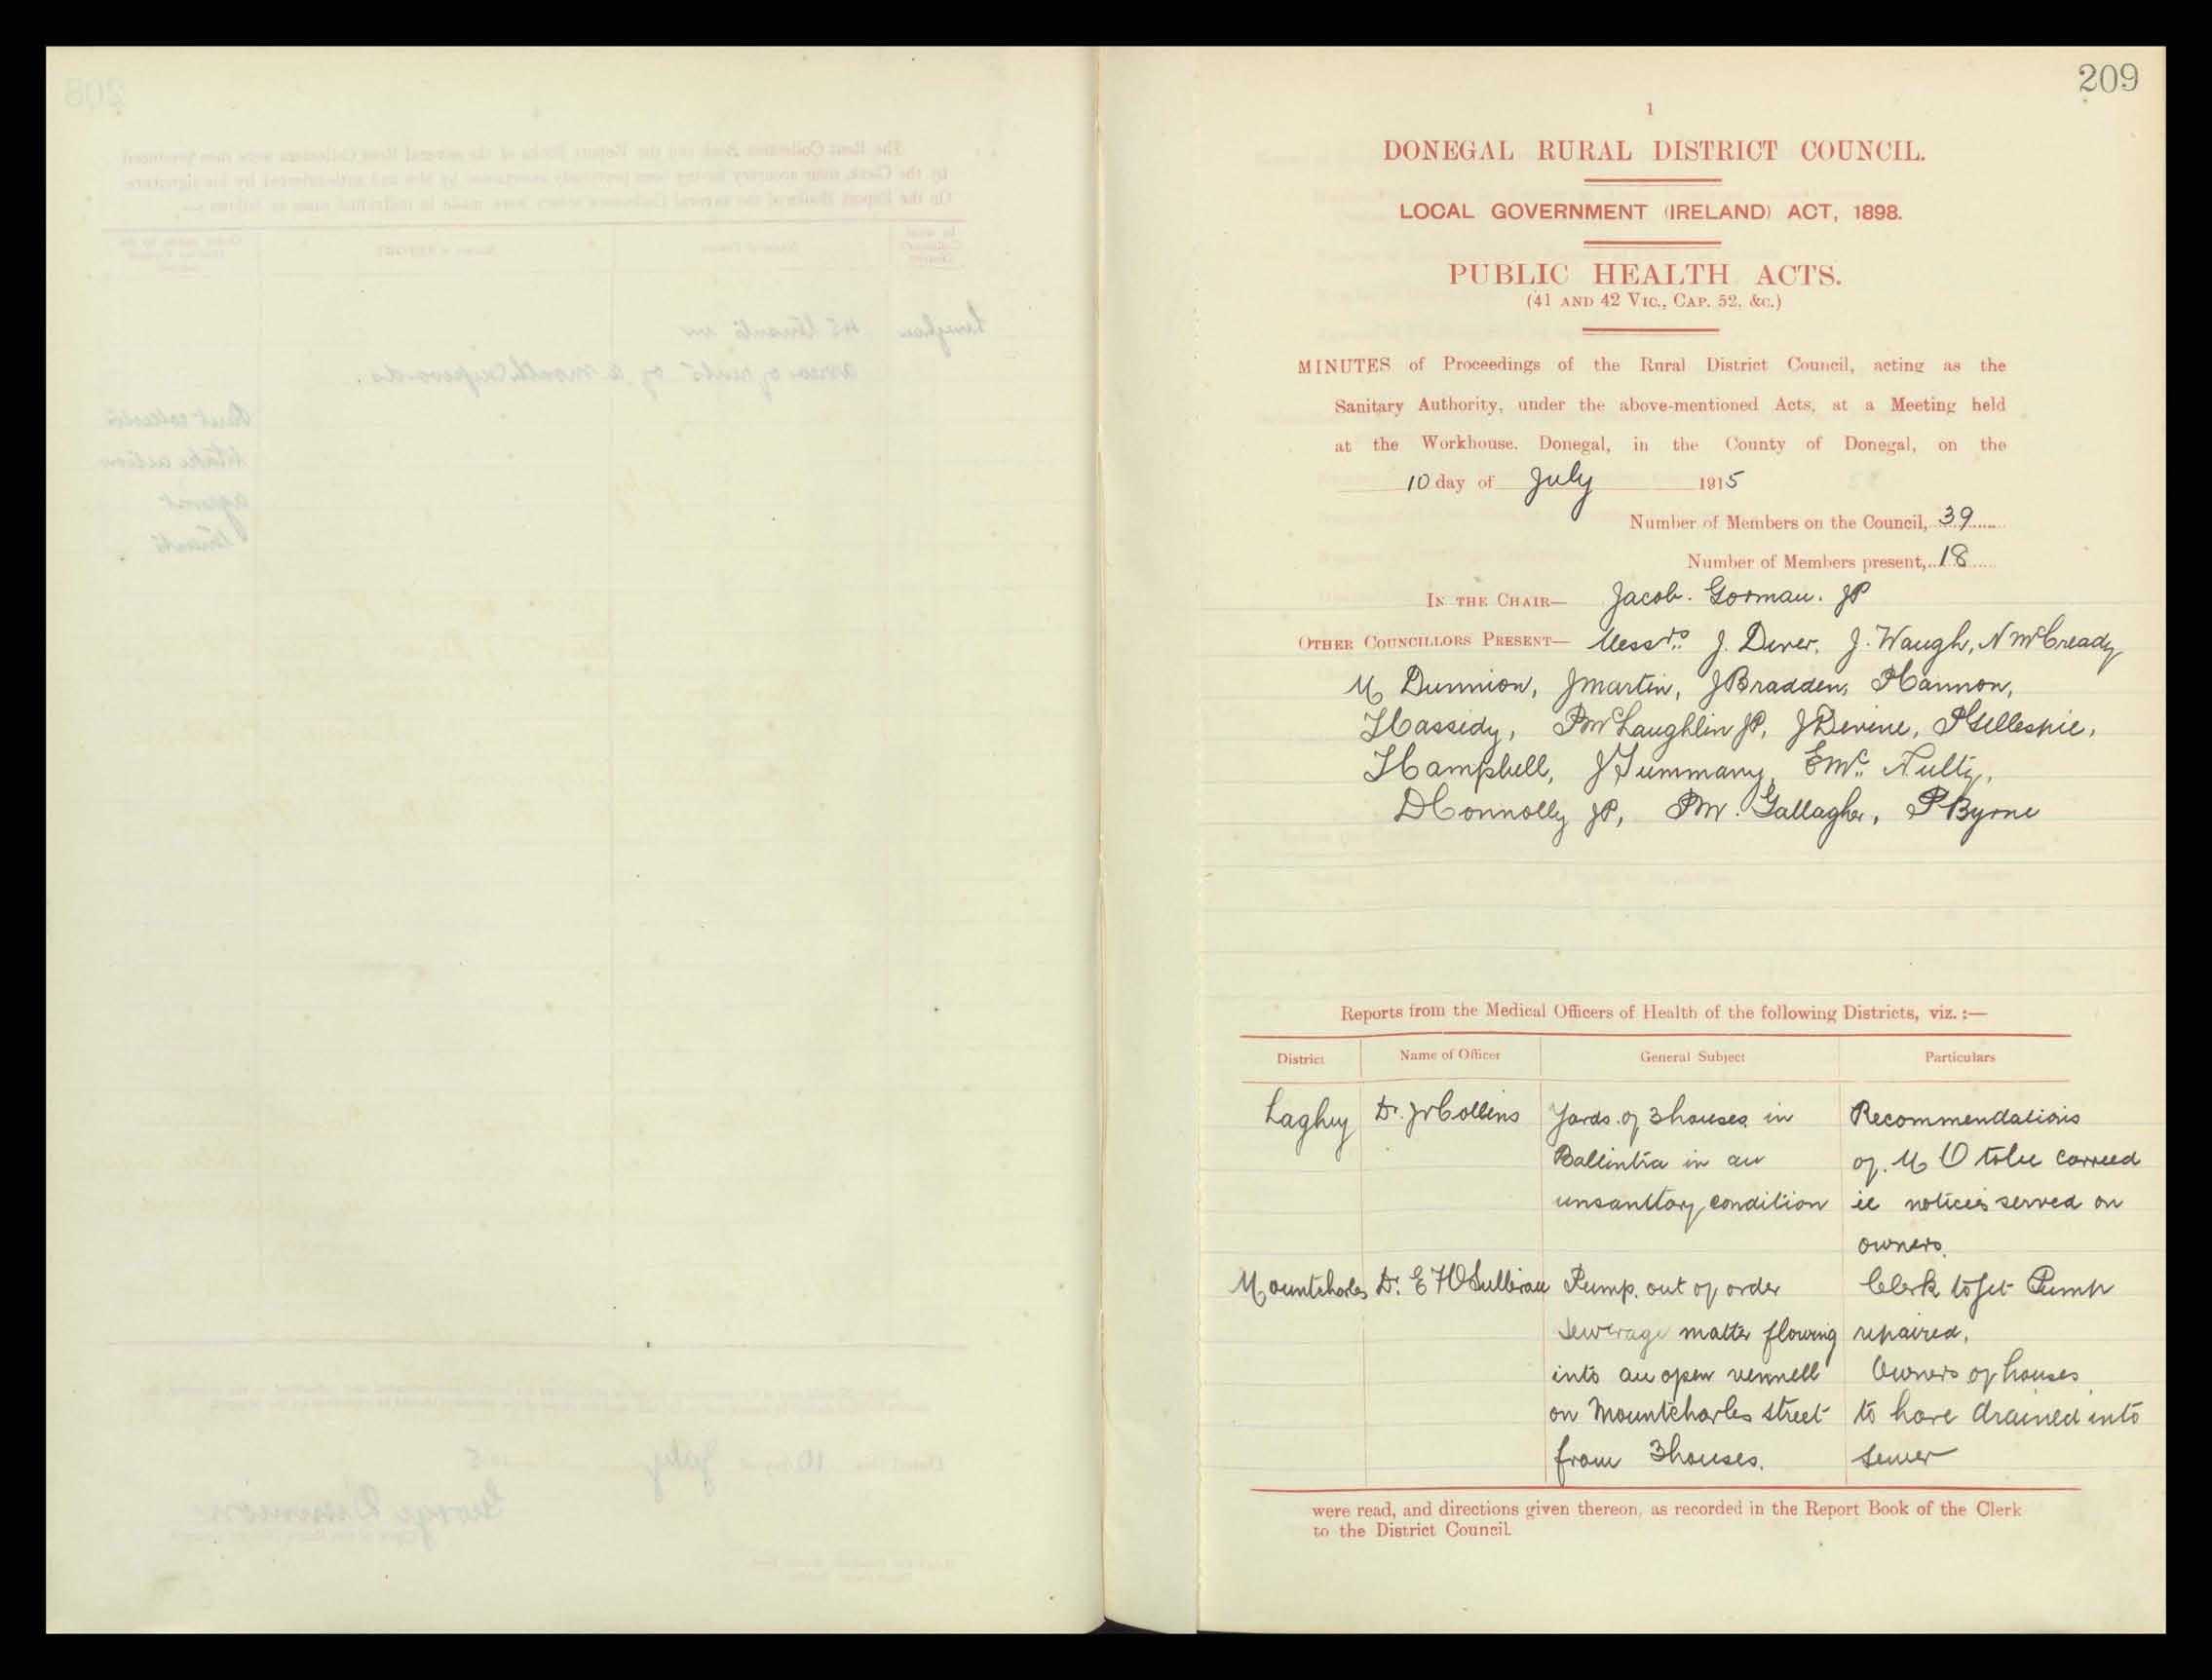 209
1
DONEGAL RURAL DISTRICT COUNCIL.
LOCAL GOVERNMENT (IRELAND) ACT, 1898.
PUBLIC HEALTH ACTS.
(41 AND 42 VIC., CAP. 52, &C.)
MINUTES of Proceedings of the Rural District Council, acting as the
Sanitary Authority, under the above-mentioned Acts, at a Meeting held
at the Workhouse. Donegal, in the County of Donegal, on the
10 day of July 1915
Number of Members on the Council, 39
Number of Members present, 18
IN THE CHAIR— Jacob. Gorman. JP
OTHER COUNCILLORS PRESENT— Messrs. J. Dever, J. Waugh, N McCready
M Dunnion, J Martin, J Bradden, P Cannon,
T Cassidy, P McLaughlin JP, J Devine, P Gillespie,
T Campbell, J Tummany, E Mc Nulty,
D Connolly JP, P M. Gallagher, P Byrne
Reports from the Medical Officers of Health of the following Districts, viz. :—
District Name of Officer General Subject Particulars
Laghey Dr. J Collins Yards of 3 houses in Recommendations
Ballintra in an of M O to be carried
unsanitary condition ie notices served on
owners.
Mountcharles Dr. E O'Sullivan Pump out of order Clerk to get Pump
Sewerage matter flowing repaired,
into an open vennell Owners of houses
on Mountcharles street to have drained into
from 3 houses. sewer
were read, and directions given thereon, as recorded in the Report Book of the Clerk
to the District Council.